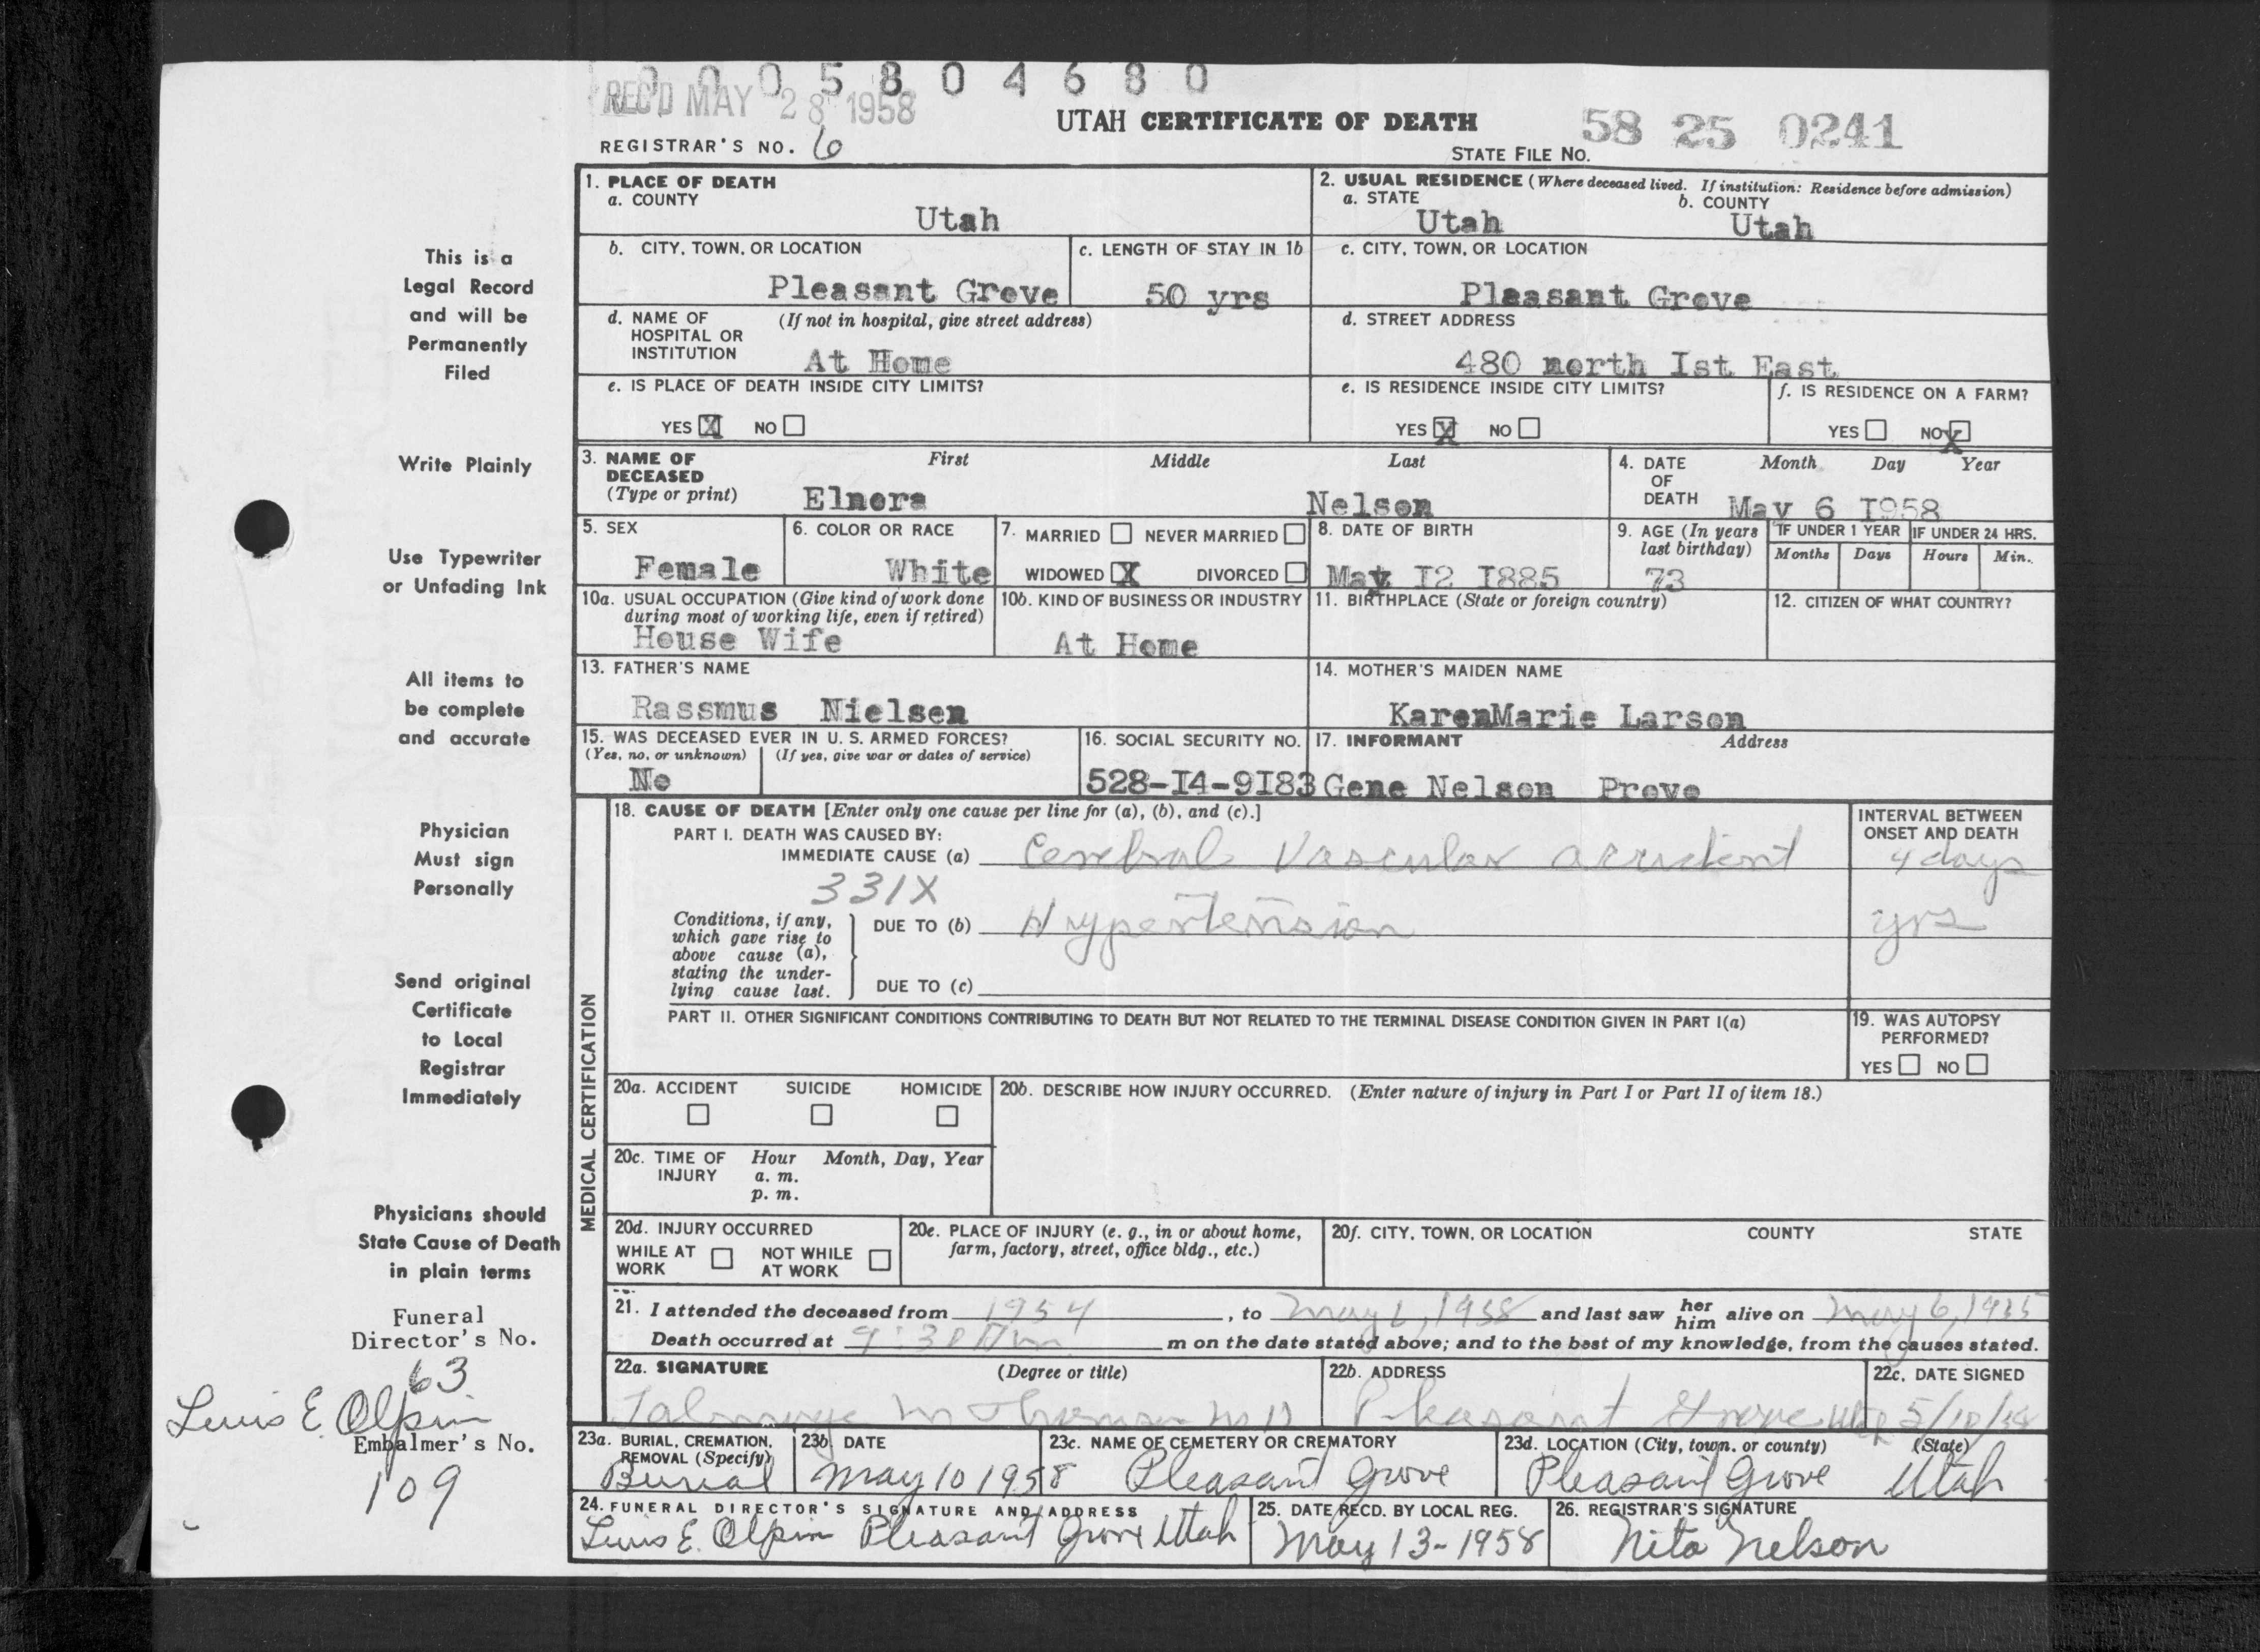 0 0 0 5 8 0 4 6 8 0
REC'D MAY 28 1958
UTAH CERTIFICATE OF DEATH
58 25 0241
REGISTRAR'S NO. 6
STATE FILE NO.
1. PLACE OF DEATH
a. COUNTY
Utah
2. USUAL RESIDENCE (Where deceased lived. If institution: Residence before admission)
a. STATE
Utah
b. COUNTY
Utah
b. CITY, TOWN, OR LOCATION
Pleasant Grove
c. LENGTH OF STAY IN 1b
50 yrs
c. CITY, TOWN, OR LOCATION
Pleasant Grove
d. NAME OF HOSPITAL OR INSTITUTION
(If not in hospital, give street address)
At Home
d. STREET ADDRESS
480 north Ist East
e. IS PLACE OF DEATH INSIDE CITY LIMITS?
YES X NO
e. IS RESIDENCE INSIDE CITY LIMITS?
YES X NO
f. IS RESIDENCE ON A FARM?
YES NO X
3. NAME OF DECEASED
(Type or print)
First Middle Last
Elnora Nelson
4. DATE OF DEATH
Month Day Year
May 6 I958
5. SEX
Female
6. COLOR OR RACE
White
7. MARRIED NEVER MARRIED
WIDOWED X DIVORCED
8. DATE OF BIRTH
May I2 I885
9. AGE (In years last birthday)
73
IF UNDER 1 YEAR
Months Days
IF UNDER 24 HRS.
Hours Min.
10a. USUAL OCCUPATION (Give kind of work done during most of working life, even if retired)
House Wife
10b. KIND OF BUSINESS OR INDUSTRY
At Home
11. BIRTHPLACE (State or foreign country)
12. CITIZEN OF WHAT COUNTRY?
13. FATHER'S NAME
Rassmus Nielsen
14. MOTHER'S MAIDEN NAME
KarenMarie Larson
15. WAS DECEASED EVER IN U. S. ARMED FORCES?
(Yes, no, or unknown) (If yes, give war or dates of service)
No
16. SOCIAL SECURITY NO.
528-I4-9I83
17. INFORMANT Address
Gene Nelson Provo
MEDICAL CERTIFICATION
18. CAUSE OF DEATH [Enter only one cause per line for (a), (b), and (c).]
PART I. DEATH WAS CAUSED BY:
IMMEDIATE CAUSE (a) Cerebral Vascular accident
331X
INTERVAL BETWEEN ONSET AND DEATH
4 days
Conditions, if any, which gave rise to above cause (a), stating the underlying cause last.
DUE TO (b) Hypertension
yrs
DUE TO (c)
PART II. OTHER SIGNIFICANT CONDITIONS CONTRIBUTING TO DEATH BUT NOT RELATED TO THE TERMINAL DISEASE CONDITION GIVEN IN PART I(a)
19. WAS AUTOPSY PERFORMED?
YES NO
20a. ACCIDENT SUICIDE HOMICIDE
20b. DESCRIBE HOW INJURY OCCURRED. (Enter nature of injury in Part I or Part II of item 18.)
20c. TIME OF INJURY
Hour Month, Day, Year
a. m.
p. m.
20d. INJURY OCCURRED
WHILE AT WORK NOT WHILE AT WORK
20e. PLACE OF INJURY (e. g., in or about home, farm, factory, street, office bldg., etc.)
20f. CITY, TOWN, OR LOCATION COUNTY STATE
21. I attended the deceased from 1954, to May 6, 1958 and last saw her him alive on May 6, 1955
Death occurred at 9:30 m on the date stated above; and to the best of my knowledge, from the causes stated.
22a. SIGNATURE (Degree or title)
MD
22b. ADDRESS
Pleasant Grove Utah
22c. DATE SIGNED
5/10/58
23a. BURIAL, CREMATION, REMOVAL (Specify)
Burial
23b. DATE
May 10 1958
23c. NAME OF CEMETERY OR CREMATORY
Pleasant Grove
23d. LOCATION (City, town, or county) (State)
Pleasant Grove Utah
24. FUNERAL DIRECTOR'S SIGNATURE AND ADDRESS
E. Olpin Pleasant Grove Utah
25. DATE RECD. BY LOCAL REG.
May 13-1958
26. REGISTRAR'S SIGNATURE
Nita Nelson
This is a
Legal Record
and will be
Permanently
Filed
Write Plainly
Use Typewriter
or Unfading Ink
All items to
be complete
and accurate
Physician
Must sign
Personally
Send original
Certificate
to Local
Registrar
Immediately
Physicians should
State Cause of Death
in plain terms
Funeral
Director's No.
63
E. Olpin
Embalmer's No.
109